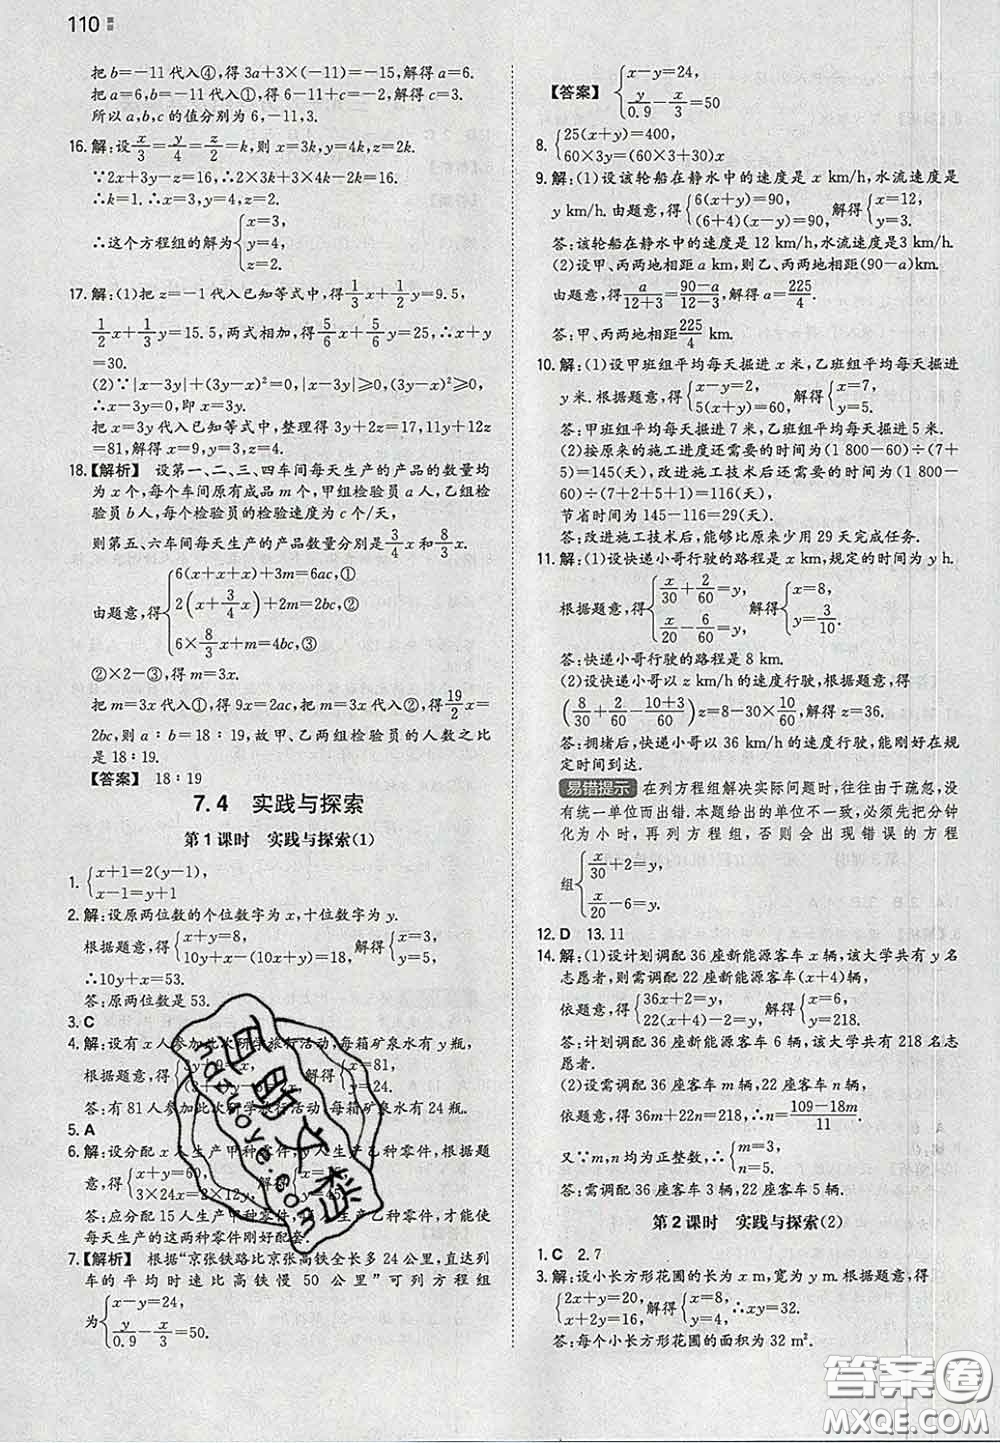 110
把b=-11代入④,得3a+3×(-11)=-15,解得a=6.
把a=6,b=-11代入①,得6-11+c=-2,解得c=3.
所以a,b,c的值分别为6,-11,3.
16.解:设x/3=y/4=z/2=k,则x=3k,y=4k,z=2k.
∵2x+3y-z=16,∴2×3k+3×4k-2k=16.
∴k=1.∴x=3,y=4,z=2.
∴这个方程组的解为{x=3,
y=4,
z=2.
17.解:(1)把z=-1代入已知等式中,得1/3x+1/2y=9.5,
1/2x+1/3y=15.5,两式相加,得5/6x+5/6y=25,∴x+y
=30.
(2)∵|x-3y|+(3y-x)²=0,|x-3y|≥0,(3y-x)²≥0,
∴x-3y=0,即x=3y.
把x=3y代入已知等式中,整理得3y+2z=17,11y+12z
=81,解得x=9,y=3,z=4.
18.【解析】 设第一、二、三、四车间每天生产的产品的数量均
为x个,每个车间原有成品m个,甲组检验员a人,乙组检
验员b人,每个检验员的检验速度为c个/天,
则第五、六车间每天生产的产品数量分别是3/4x和8/3x.
由题意,得{6(x+x+x)+3m=6ac,①
2(x+3/4x)+2m=2bc,②
6×8/3x+m=4bc,③
②×2-③,得m=3x.
把m=3x代入①,得9x=2ac,把m=3x代入②,得19/2x=
2bc,则a:b=18:19,故甲、乙两组检验员的人数之比
是18:19.
【答案】 18:19
7.4 实践与探索
第1课时 实践与探索(1)
1.{x+1=2(y-1),
x-1=y+1
2.解:设原两位数的个位数字为x,十位数字为y.
根据题意,得{x+y=8,
10y+x-(10x+y)=18,解得{x=3,
y=5.
∴10y+x=53.
答:原两位数是53.
3.C
4.解:设有x人参加此次研学旅行活动,每箱矿泉水有y瓶,
x=81,
y=24.
答:有81人参加此次研学旅行活动,每箱矿泉水有24瓶.
5.A
6.解:设分配x人生产甲种零件,y人生产乙种零件,根据题
意,得{x+y=60,
3×24x=2×12y,解得{x=15,
y=45.
答:应分配15人生产甲种零件,45人生产乙种零件,才能使
每天生产的这两种零件刚好配套.
7.【解析】 根据“京张铁路比京张高铁全长多24公里,直达列
车的平均时速比高铁慢50公里”可列方程组
为{x-y=24,
y/0.9-x/3=50.
【答案】 {x-y=24,
y/0.9-x/3=50
8.{25(x+y)=400,
60×3y=(60×3+30)x
9.解:(1)设该轮船在静水中的速度是x km/h,水流速度是
y km/h.由题意,得{6(x+y)=90,
(6+4)(x-y)=90,解得{x=12,
y=3.
答:该轮船在静水中的速度是12 km/h,水流速度是3 km/h.
(2)设甲、丙两地相距a km,则乙、丙两地相距(90-a)km.
由题意,得a/12+3=90-a/12-3,解得a=225/4.
答:甲、丙两地相距225/4 km.
10.解:(1)设甲班组平均每天掘进x米,乙班组平均每天掘进
y米.根据题意,得{x-y=2,
5(x+y)=60,解得{x=7,
y=5.
答:甲班组平均每天掘进7米,乙班组平均每天掘进5米.
(2)按原来的施工进度还需要的时间为(1 800-60)÷(7+
5)=145(天),改进施工技术后还需要的时间为(1 800-
60)÷(7+2+5+1)=116(天),
节省时间为145-116=29(天).
答:改进施工技术后,能够比原来少用29天完成任务.
11.解:(1)设快递小哥行驶的路程是x km,规定的时间为y h.
根据题意,得{x/30+2/60=y,
x/20-6/60=y,解得{x=8,
y=3/10.
答:快递小哥行驶的路程是8 km.
(2)设快递小哥以z km/h的速度行驶,根据题意,得
(8/30+2/60-10+3/60)z=8-30×10/60,解得z=36.
答:拥堵后,快递小哥以36 km/h的速度行驶,刚好能在规
定时间到达.
易错提示 在列方程组解决实际问题时,往往由于疏忽,没
有统一单位而出错.本题给出的单位不一致,必须先把分钟
化为小时,再列方程组,否则会出现错误的方程
组{x/30+2=y,
x/20-6=y.
12.D 13.11
14.解:(1)设计划调配36座新能源客车x辆,该大学共有y名
志愿者,则需调配22座新能源客车(x+4)辆,
依题意,得{36x+2=y,
22(x+4)-2=y,解得{x=6,
y=218.
答:计划调配36座新能源客车6辆,该大学共有218名志
愿者.
(2)设需调配36座客车m辆,22座客车n辆,
依题意,得36m+22n=218,∴n=109-18m/11.
又∵m,n均为正整数,∴{m=3,
n=5.
答:需调配36座客车3辆,22座客车5辆.
第2课时 实践与探索(2)
1.C 2.7
3.解:设小长方形花圃的长为x m,宽为y m.由题意,得
{2x+y=20,
x+2y=16,解得{x=8,
y=4,∴xy=32.
答:每个小长方形花圃的面积为32 m².
答案圈
MXQE.COM